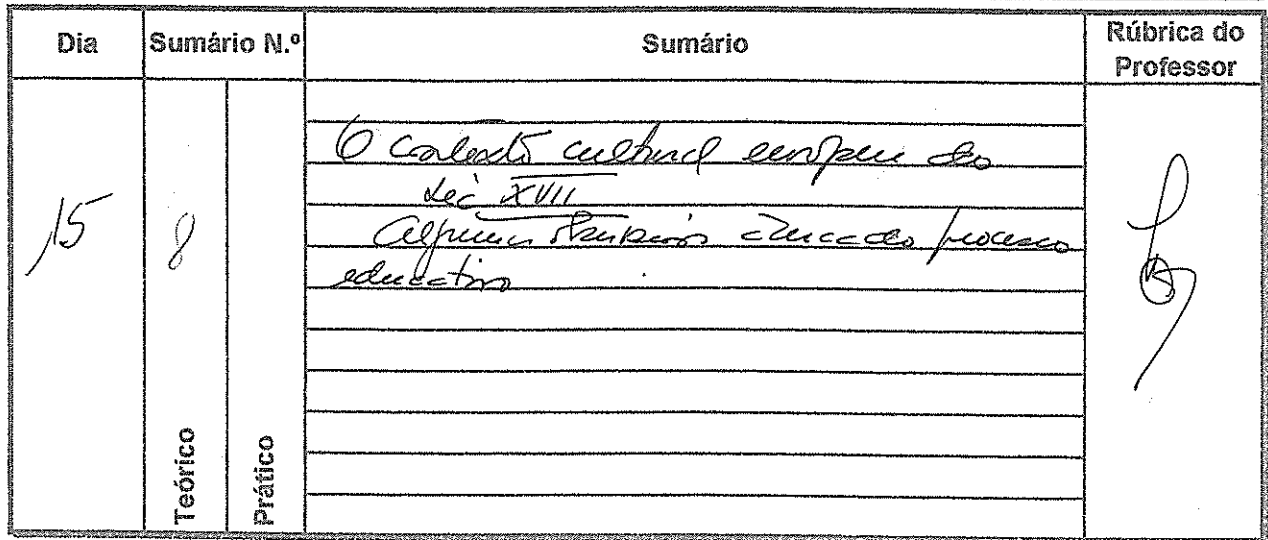 Dia Sumário N.º Sumário Rúbrica do Professor
15 8
O contexto cultural europeu do
séc XVII
Algumas acerca do processo
educativo
Teórico Prático